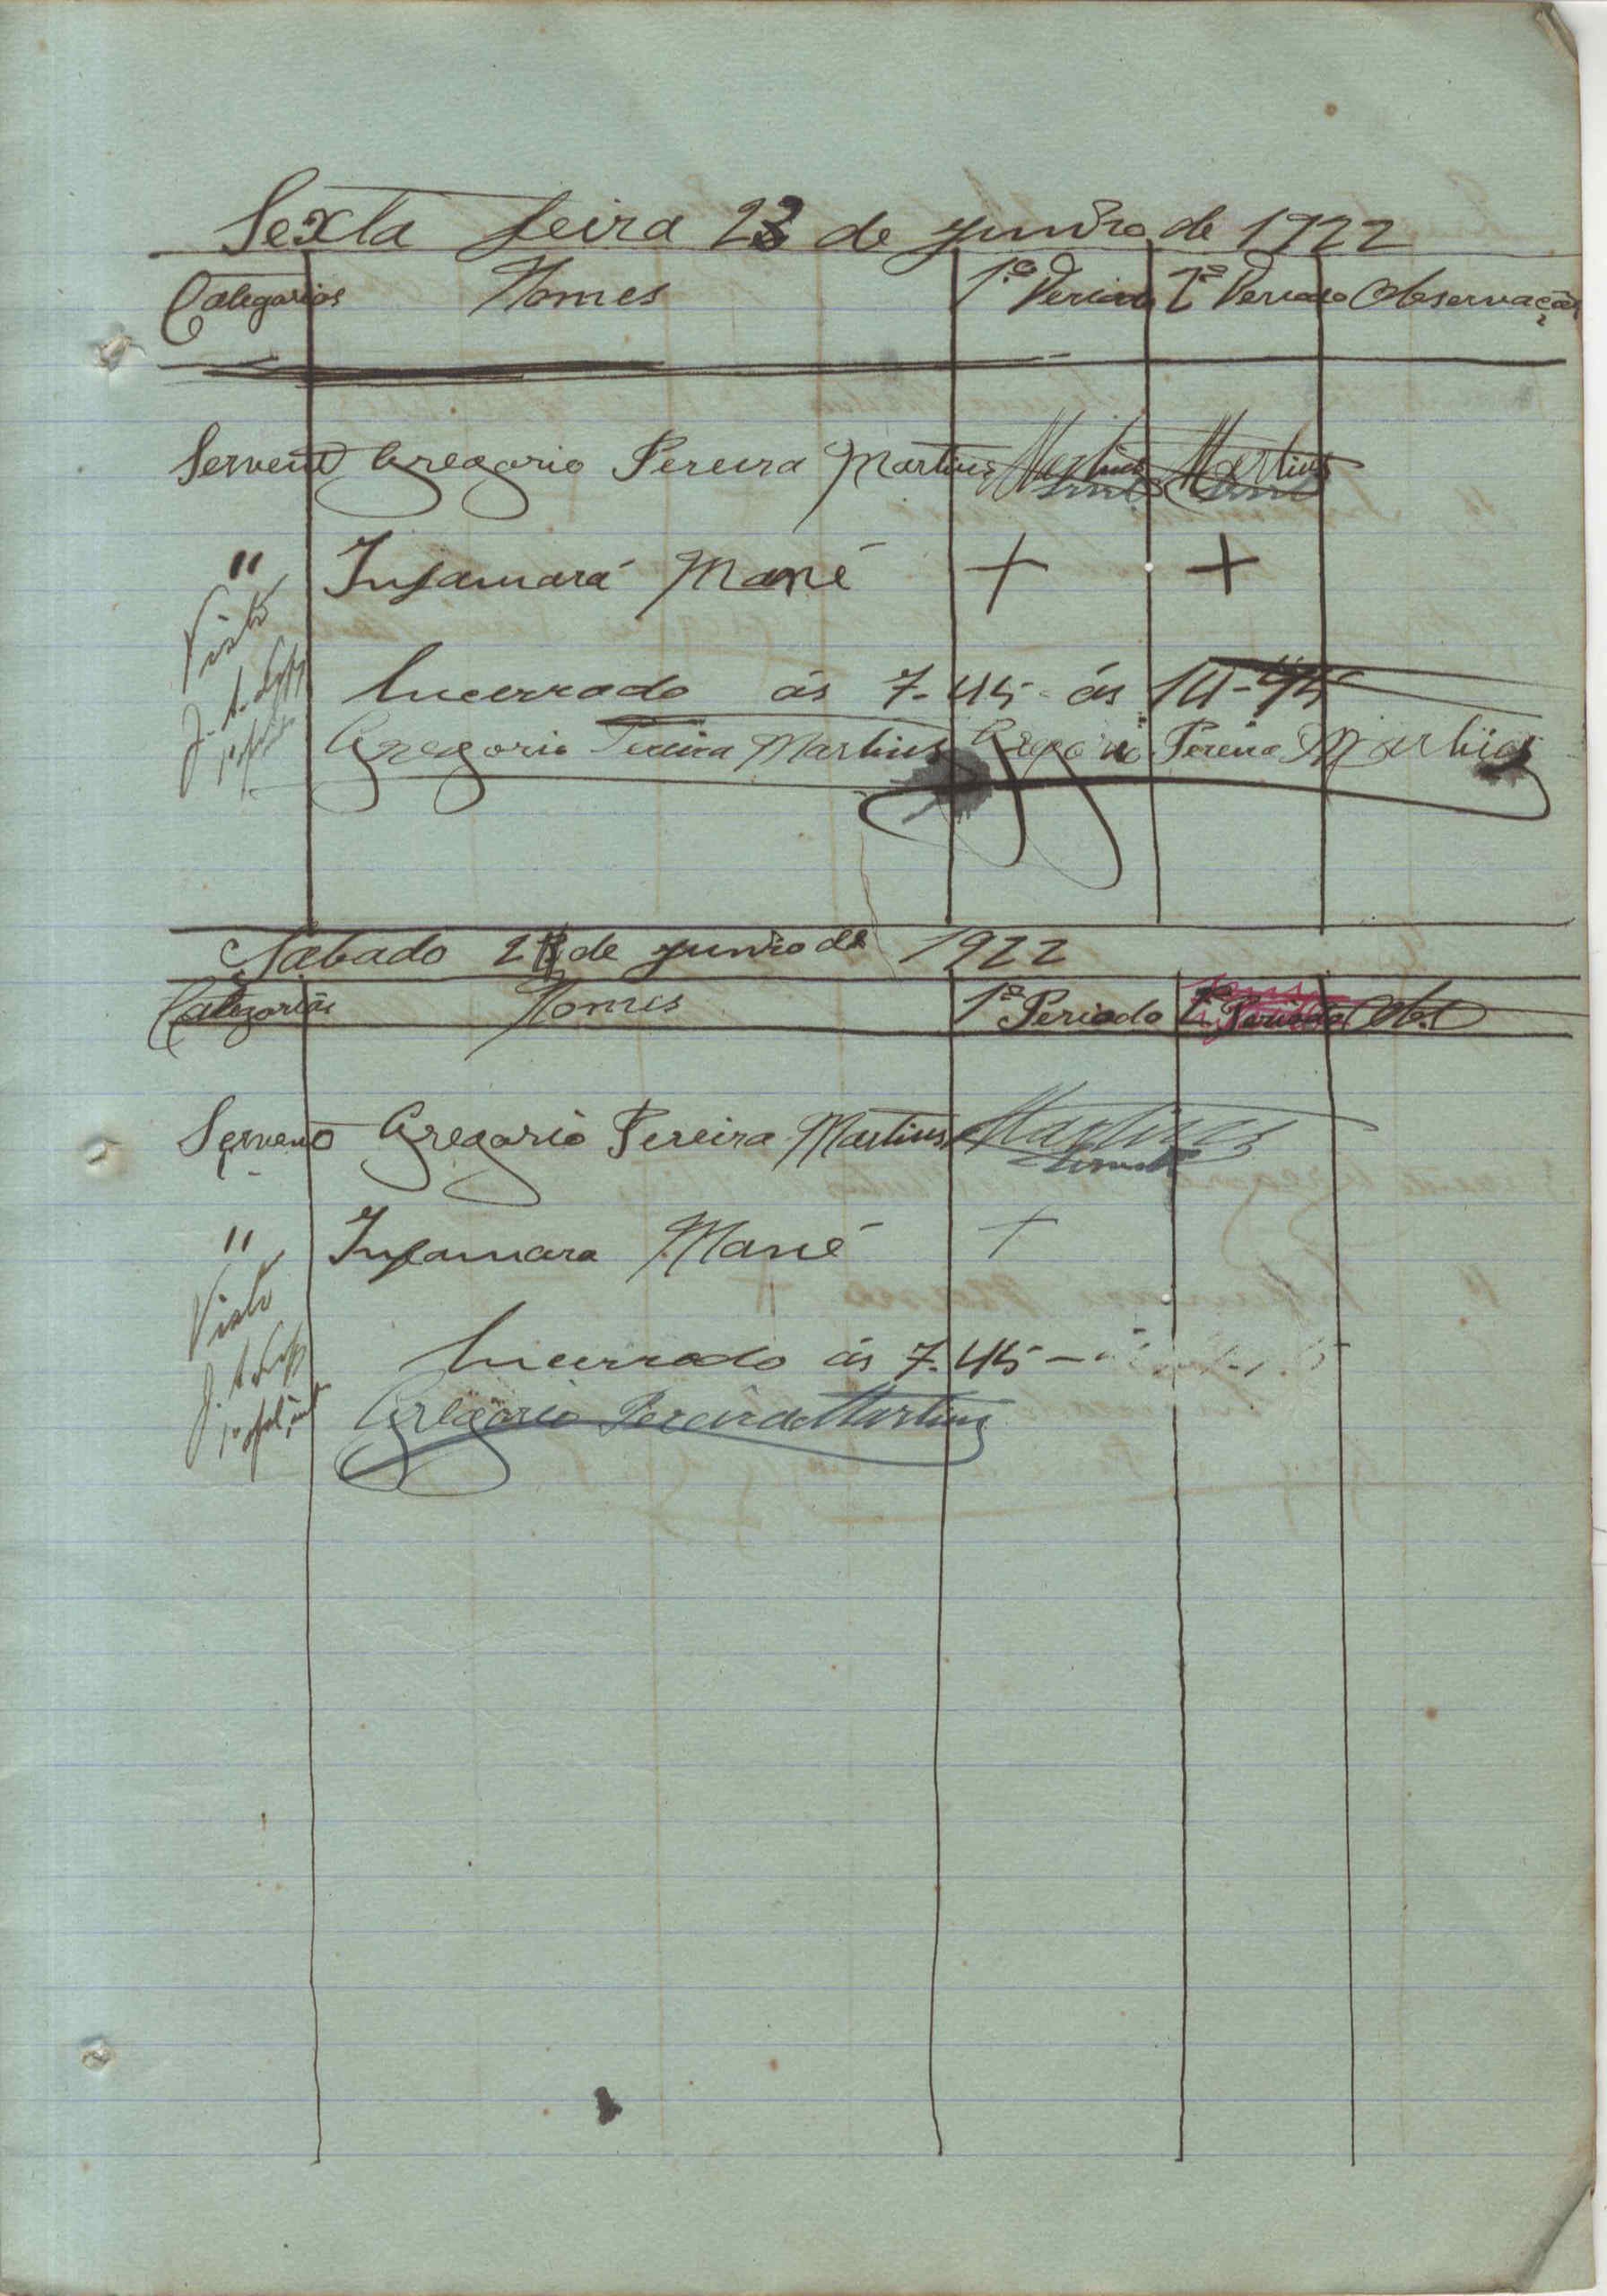 Sexta feira 23 de junho de 1922
Categorias Nomes 1.º Periodo 2º Periodo Observação
Servente Gregorio Pereira Martins Martins Martins
" Infamará Mané + +
Visto
Encerrado ás 7-45- ás 14-45
Gregorio Pereira Martins Gregorio Pereira Martins
Sabado 24 de junho de 1922
Categorias Nomes 1º Periodo 2º Periodo Obs
Servente Gregorio Pereira Martins Martins
" Infamara Mané +
Visto
Encerrado ás 7.45 –
Gregorio Pereira Martins